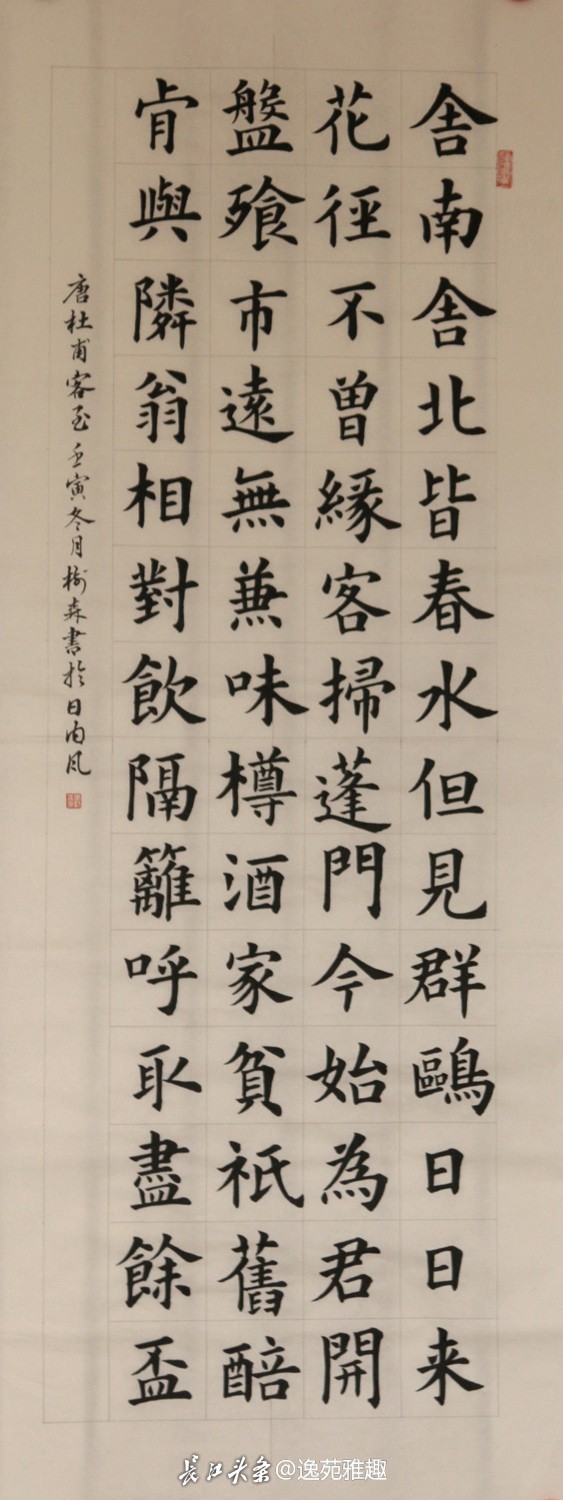 舍南舍北皆春水但見群鷗日日来
花徑不曾緣客掃蓬門今始為君開
盤飱市遠無蒹味樽酒家貧祇舊醅
肯與隣翁相對飲隔籬呼取盡餘盃
唐杜甫客至壬寅冬月樹森書於日内凨
長江头条@逸苑雅趣